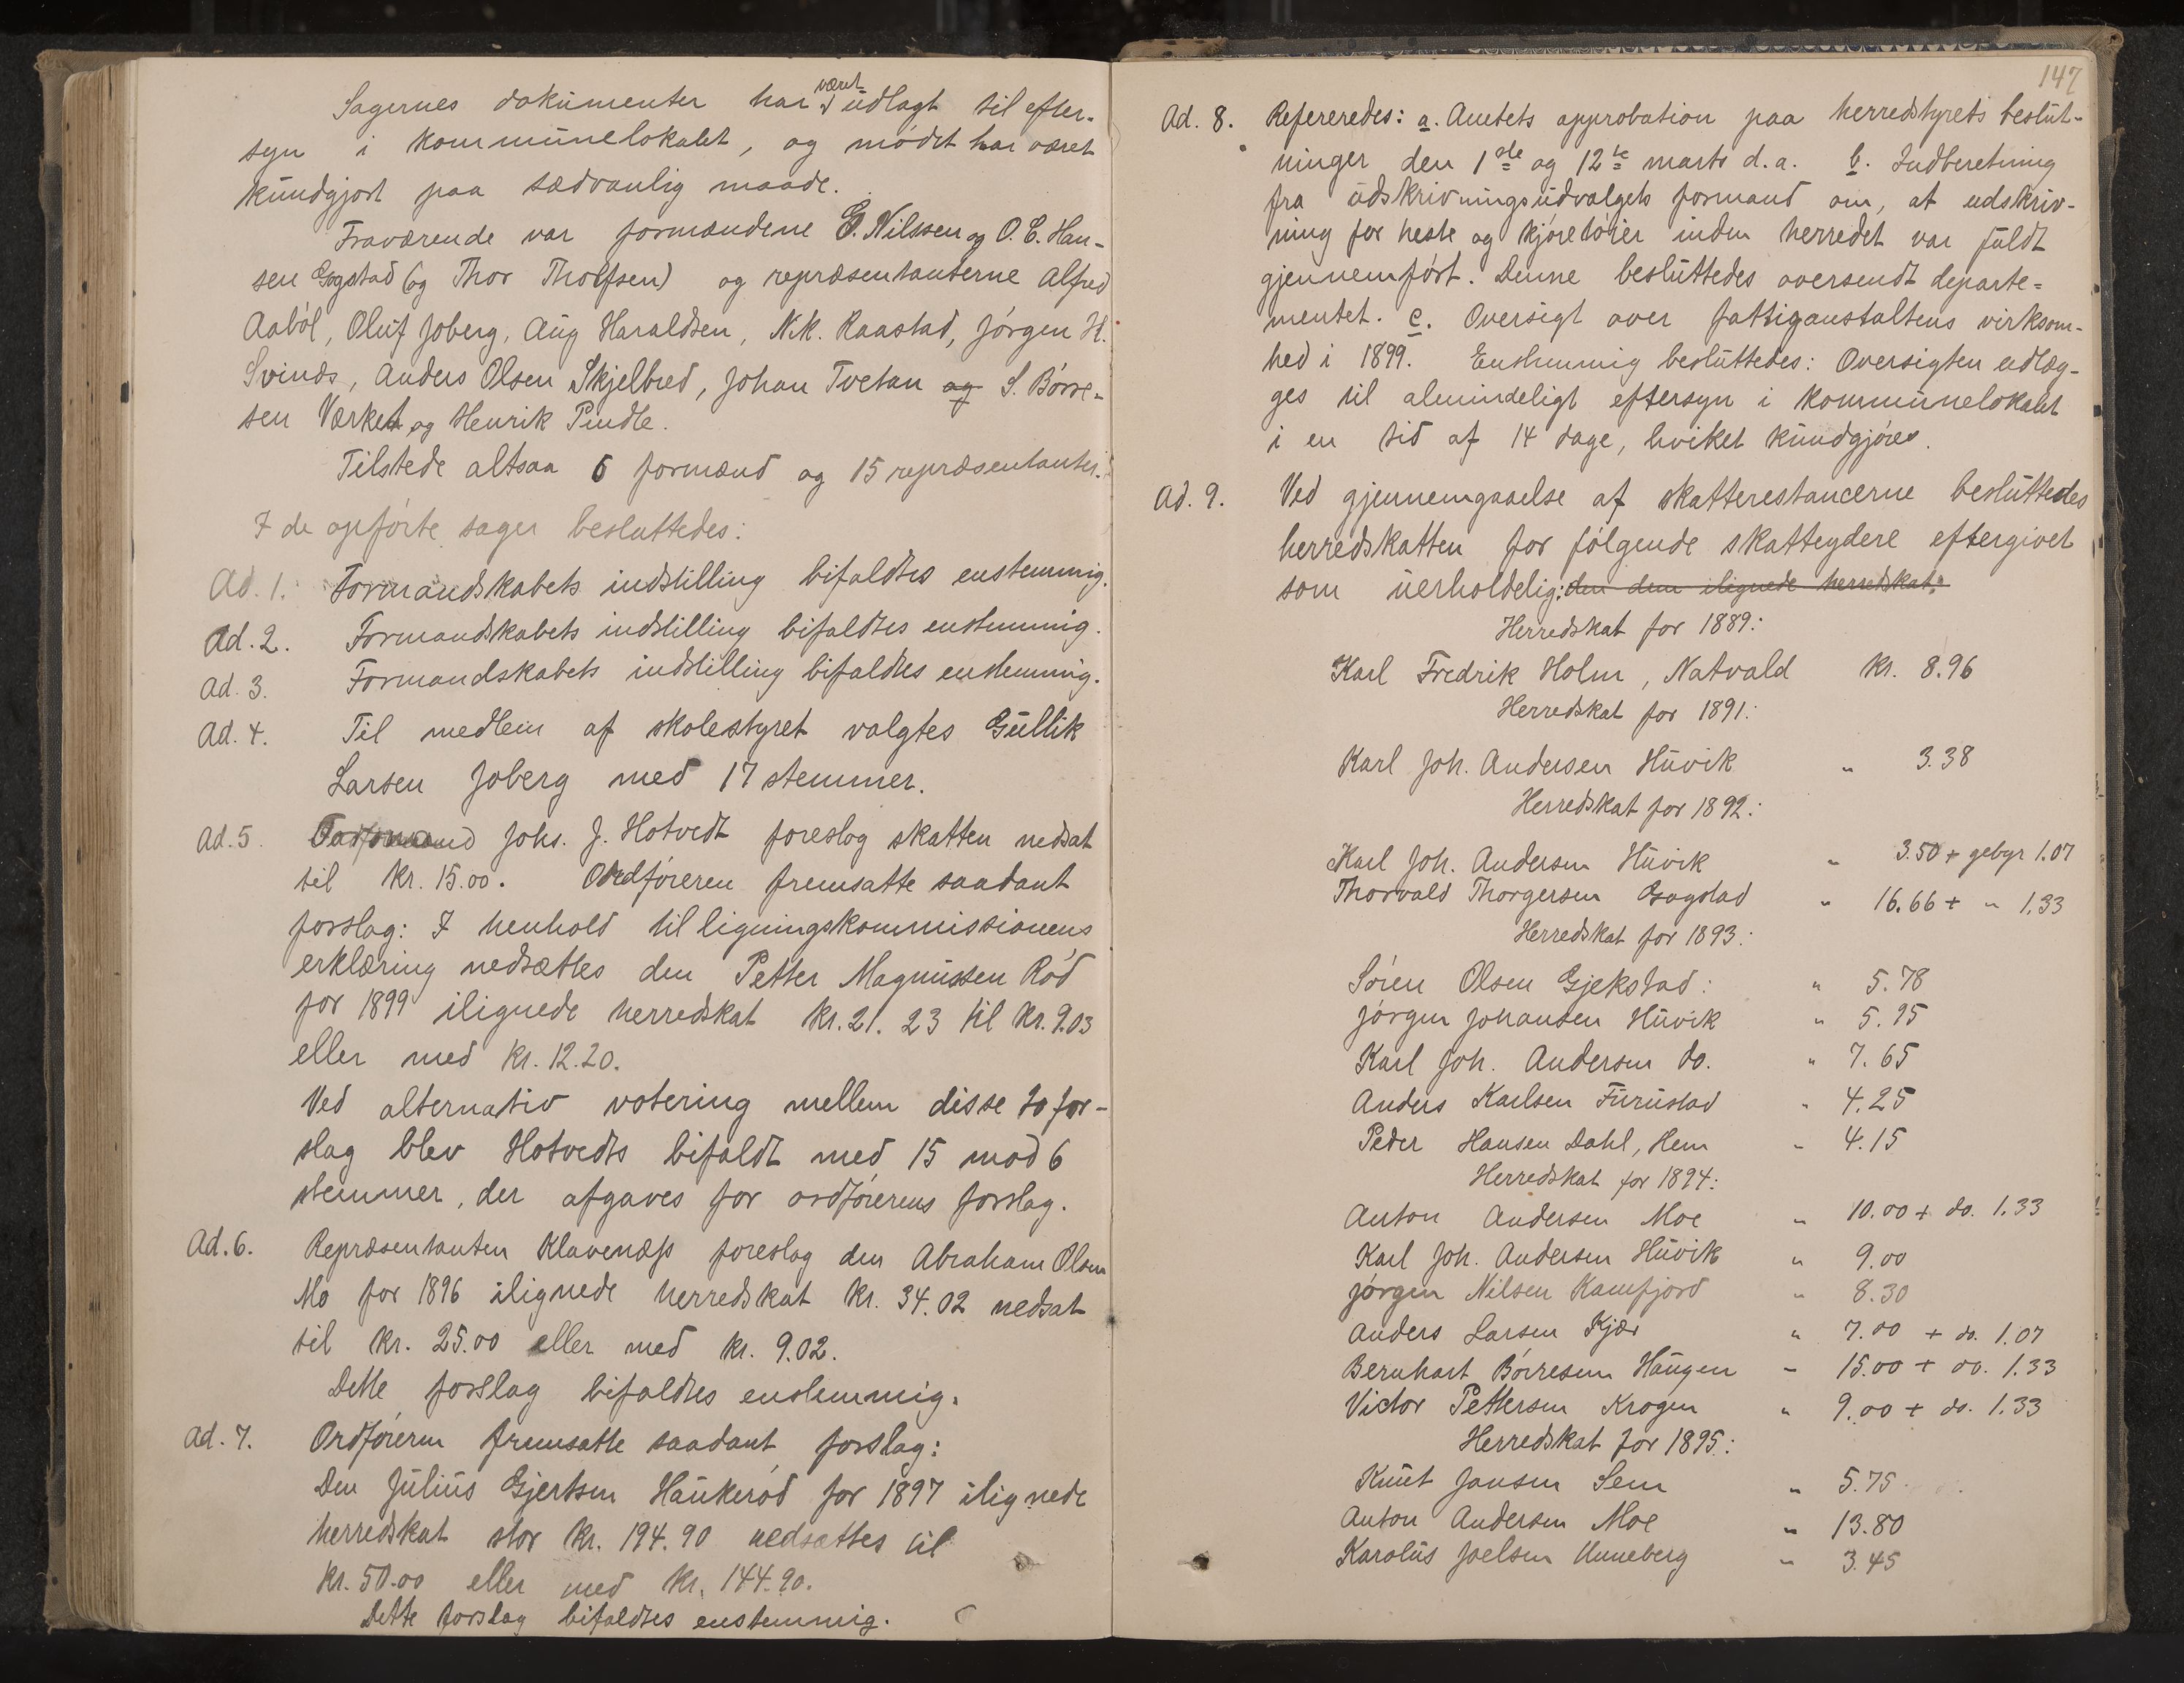 Sagernes dokumenter har været udlagt til efter-
syn i kommunelokalet, og mødet har været
kundgjort paa sædvanlig maade.
Fraværende var formændene G. Nilssen og O. E. Han-
sen Gogstad (og Thor Tholfsen) og repræsentanterne Alfred
Aaból, Oluf Joberg, Aug Haraldsen, N.K. Raastad, Jórgen H.
Svinds, Anders Olsen Skjelbred, Johan Tvetan og S. Bórre-
sen Værket og Henrik Pindle.
Tilstede altsaa 6 formænd og 15 repræsentanter.
I de opførte sager besluttedes:
Ad. 1. Formandskabets indstilling bifaldtes enstemmig.
Ad. 2. Formandskabets indstilling bifaldtes enstemmig.
Ad. 3. Formandskabets indstilling bifaldtes enstemmig.
Ad. 4. Til medlem af skolestyret valgtes Gullik
Larsen Joberg med 17 stemmer.
Ad. 5. Johs. J. Hotvedt foreslog skatten nedsat
til kr. 15.00. Ordfóreren fremsatte saadant
forslag: I henhold til ligningskommissionens
erklæring nedsættes den Petter Magnussen Ród
for 1899 ilignede herredskat kr. 21.23 til kr. 9.03
eller med kr. 12.20.
Ved alternativ votering mellem disse to for-
slag blev Hotvedts bifaldt med 15 mod 6
stemmer, der afgaves for ordfórerens forslag.
Ad. 6. Repræsentanten Klavenæss foreslog den Abraham Olsen
Mo for 1896 ilignede herredskat kr. 34.02 nedsat
til kr. 25.00 eller med kr. 9.02.
Dette forslag bifaldtes enstemmig.
Ad. 7. Ordfóreren fremsatte saadant forslag:
Den Julius Gjertsen Haukeród for 1897 ilignede
herredskat stor kr. 194.90 nedsættes til
kr. 50.00 eller med kr. 144.90.
Dette forslag bifaldtes enstemmig.
147
Ad. 8. Refereredes: a. Amtets approbation paa herredstyrets beslut-
ninger den 1ste og 12te marts d.a. b. Indberetning
fra udskrivningsudvalgets formand om, at udskriv-
ning for heste og kjóretóier inden herredet var fuldt
gjennemfórt. Denne besluttedes oversendt departe-
mentet. c. Oversigt over fattiganstaltens virksom-
hed i 1899. Enstemmig besluttedes: Oversigten udlæg-
ges til almindeligt eftersyn i kommunelokalet
i en tid af 14 dage, hvilket kundgjóres.
Ad. 9. Ved gjennemgaaelse af skatterestancerne besluttedes
herredskatten for fólgende skatteydere eftergivet
som uerholdelig: den dem ilignede herredskat:
Herredskat for 1889:
Karl Fredrik Holm, Natvald kr. 8.96
Herredskat for 1891:
Karl Joh. Andersen Huvik " 3.38
Herredskat for 1892:
Karl Joh. Andersen Huvik " 3.50 + gebyr 1.07
Thorvald Thorgersen Gogstad " 16.66 + " 1.33
Herredskat for 1893:
Sóren Olsen Gjekstad: " 5.78
Jórgen Johansen Huvik " 5.95
Karl Joh. Andersen do. " 7.65
Anders Karlsen Furustad " 4.25
Peder Hansen Dahl, Hem " 4.15
Herredskat for 1894:
Anton Andersen Moe " 10.00 + do. 1.33
Karl Joh. Andersen Huvik " 9.00
Jórgen Nilsen Kamfjord " 8.30
Anders Larsen Kjær " 7.00 + do. 1.07
Bernhart Bórresen Haugen " 15.00 + do. 1.33
Victor Pettersen Krogen " 9.00 + do. 1.33
Herredskat for 1895:
Knut Jansen Sem " 5.75
Anton Andersen Moe " 13.80
Karolus Joelsen Unneberg " 3.45